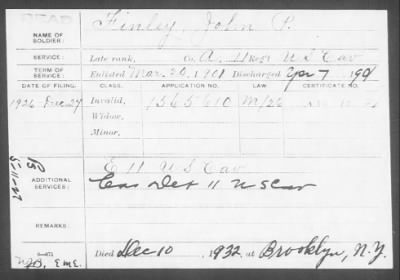 DEAD
NAME OF SOLDIER: Finley, John P.
SERVICE: Late rank, Co. A, 11 Reg't U S Cav
TERM OF SERVICE: Enlisted Mar. 20, 1901 Discharged Apr 7, 190
DATE OF FILING. CLASS. APPLICATION NO. LAW. CERTIFICATE NO.
1926 Dec 27 Invalid, 1565610 M/26
Widow,
Minor,
5-11-27
ADDITIONAL SERVICES: E 11 U S Cav
Cas Det 11 U S Cav
REMARKS:
Died Dec 10, 1932, at Brooklyn, N.Y.
EME.